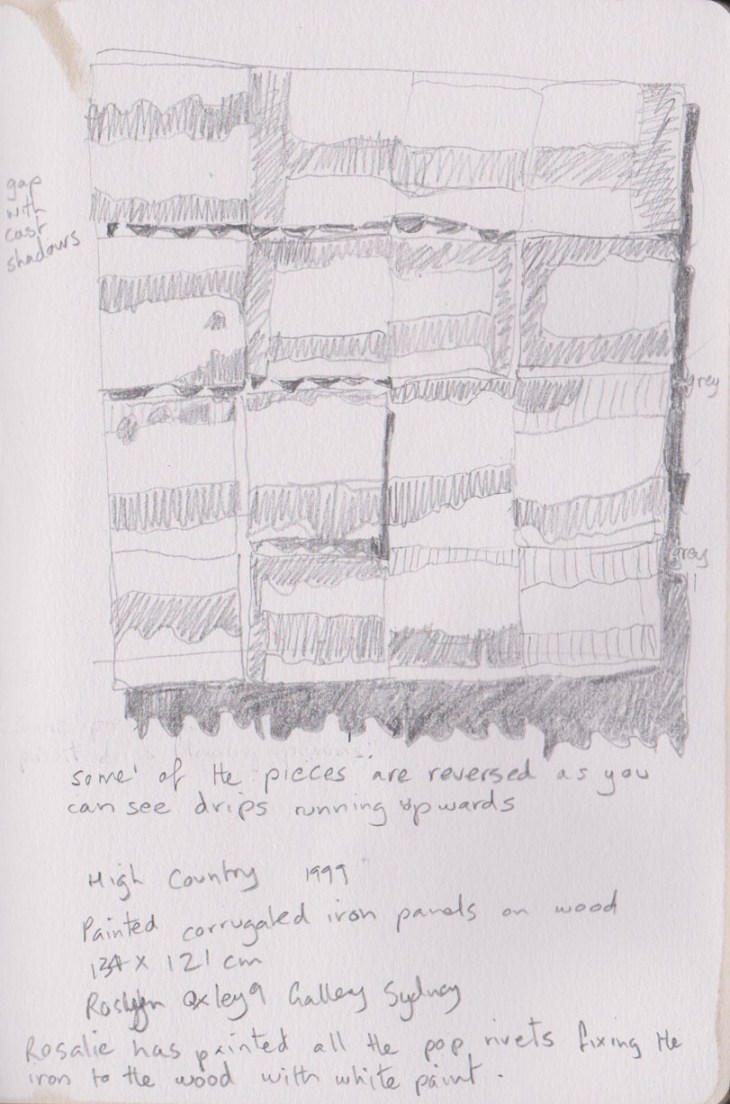 gap
with
cast
shadows
grey
grey
some of the pieces are reversed as you
can see drips running upwards
High Country 1999
Painted corrugated iron panels on wood
134 x 121 cm
Roslyn Oxley9 Gallery Sydney
Rosalie has painted all the pop rivets fixing the
iron to the wood with white paint.